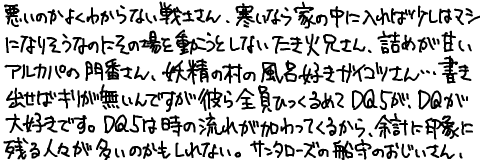 悪いのかよくわからない戦士さん、寒いなら家の中に入れば少しはマシ
になりそうなのにその場を動こうとしないたき火兄さん、詰めが甘い
アルカパの門番さん、妖精の村の風呂好きガイコツさん…書き
出せばキリが無いんですが彼ら全員ひっくるめてDQ5が、DQが
大好きです。DQ5は時の流れが加わってくるから、余計に印象に
残る人々が多いのかもしれない。サンタローズの船守のおじいさん、